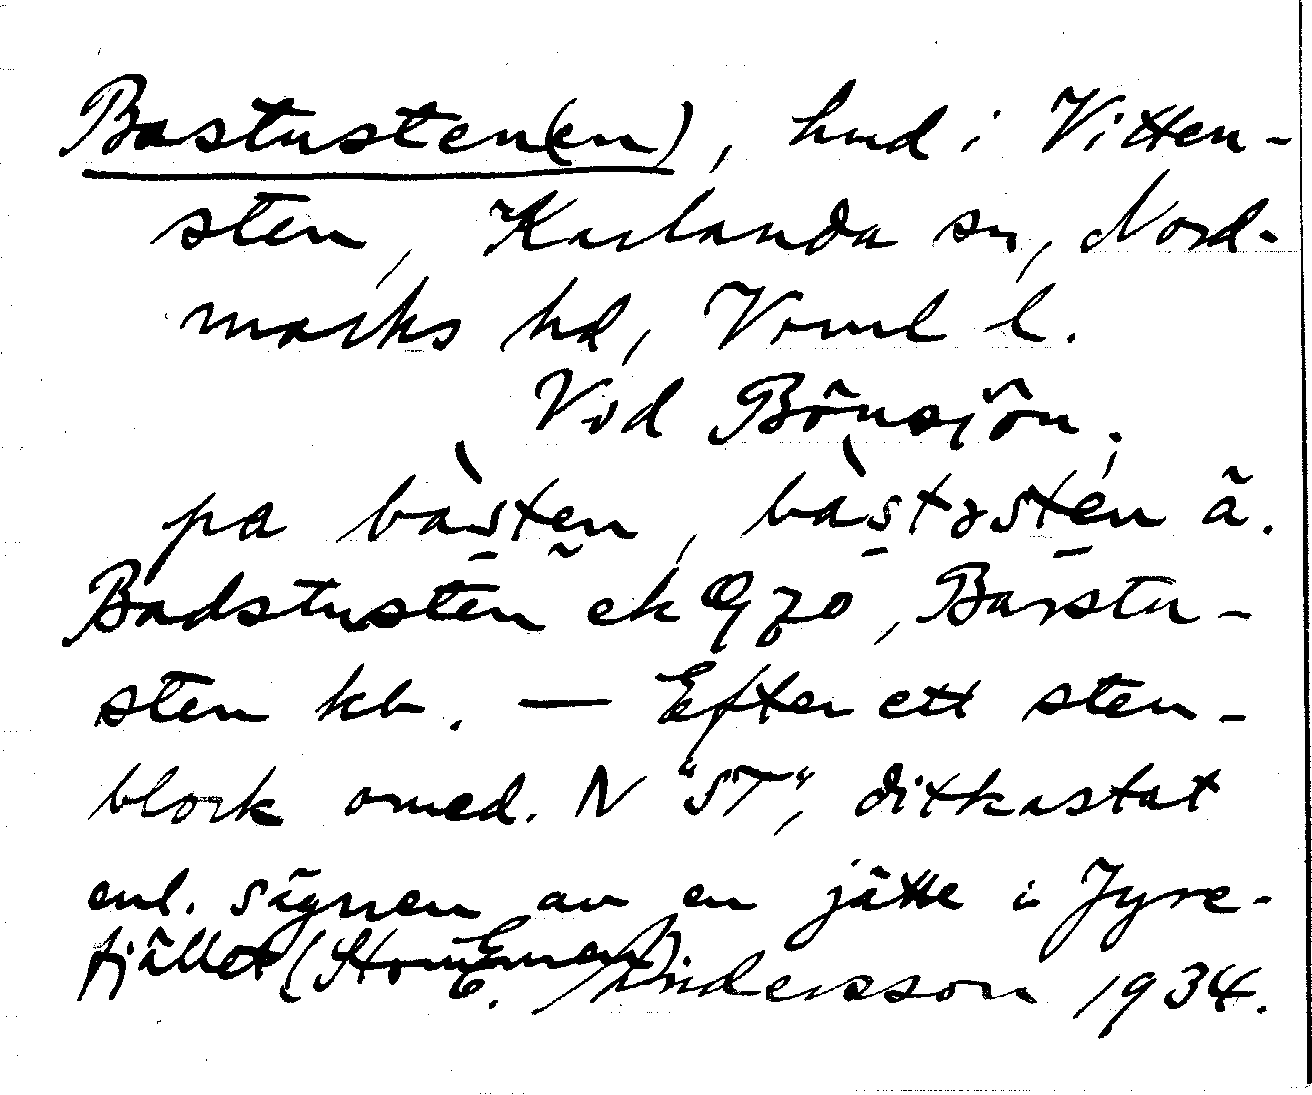 Bastusten(en), hmd i Vitten-
sten, Karlanda sn, Nord-
marks hd, Verml l.
Vid Bönsjön.
pa bàsten, bàstɤstén ä.
Badstusten ek 970, Barstu-
sten kb. — Efter ett sten-
block omed. N "ST", ditkastat
enl. sägnen av en jätte i Fyre-
fjället
E. Andersson 1934.